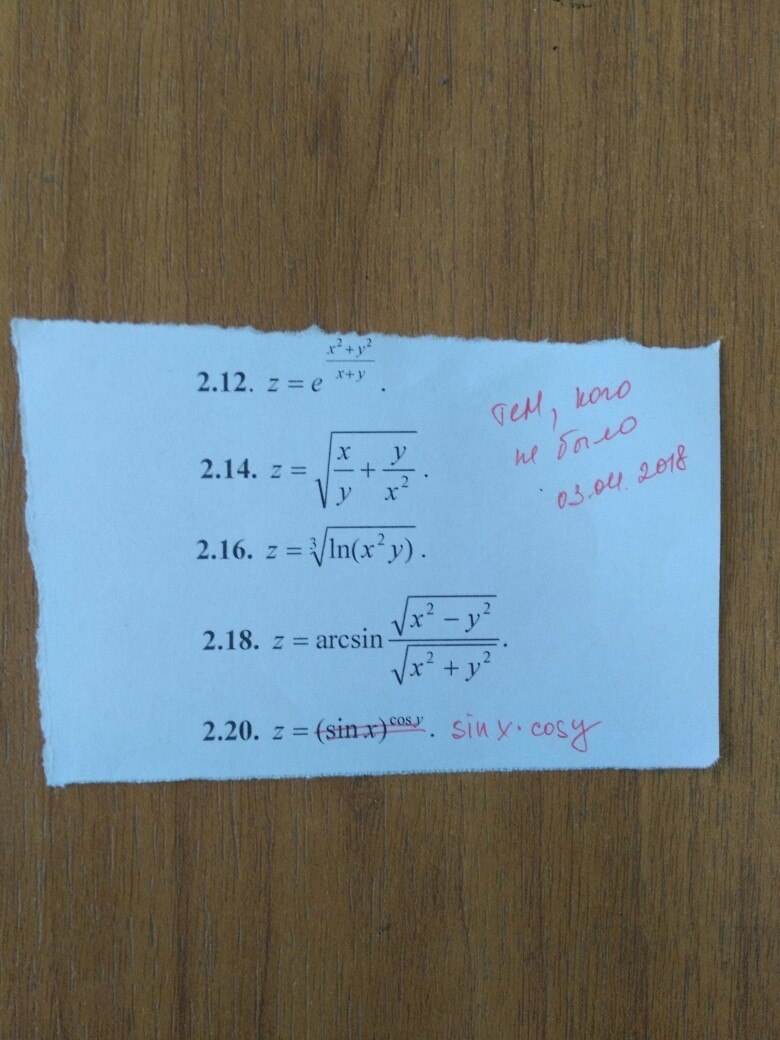 2.12. z = e^{\frac{x^2+y^2}{x+y}}.
тем, кого
не было
03.04.2018
2.14. z = \sqrt{\frac{x}{y} + \frac{y}{x^2}}.
2.16. z = \sqrt[3]{\ln(x^2 y)}.
2.18. z = arcsin \frac{\sqrt{x^2 - y^2}}{\sqrt{x^2 + y^2}}.
2.20. z = (sin x)^{cos y}. sin x · cos y